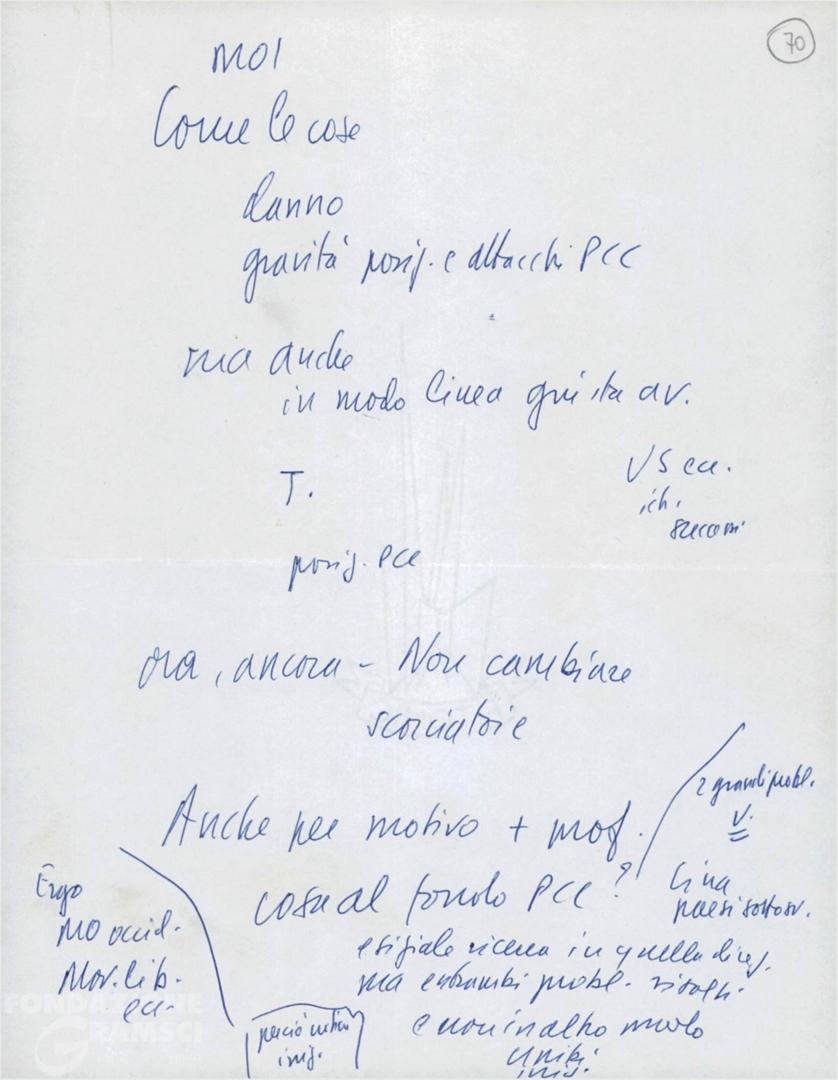 70
MOI
Come le cose
danno
gravità posiz. e attacchi PCC
ma anche
in modo linea giusta av.
T.
VS ecc.
posiz. PCC
ora, ancora - Non cambiare
scorciatoie
Anche per motivo + prof.
2 grandi probl.
V.
cosa al fondo PCC?
Cina
paesi sottosv.
Ergo
MO occid.
Mov. lib.
ecc.
esigiale ricerca in quella direz.
ma entrambi probl. risolti.
e non in altro modo
perciò
FONDAZIONE
GRAMSCI